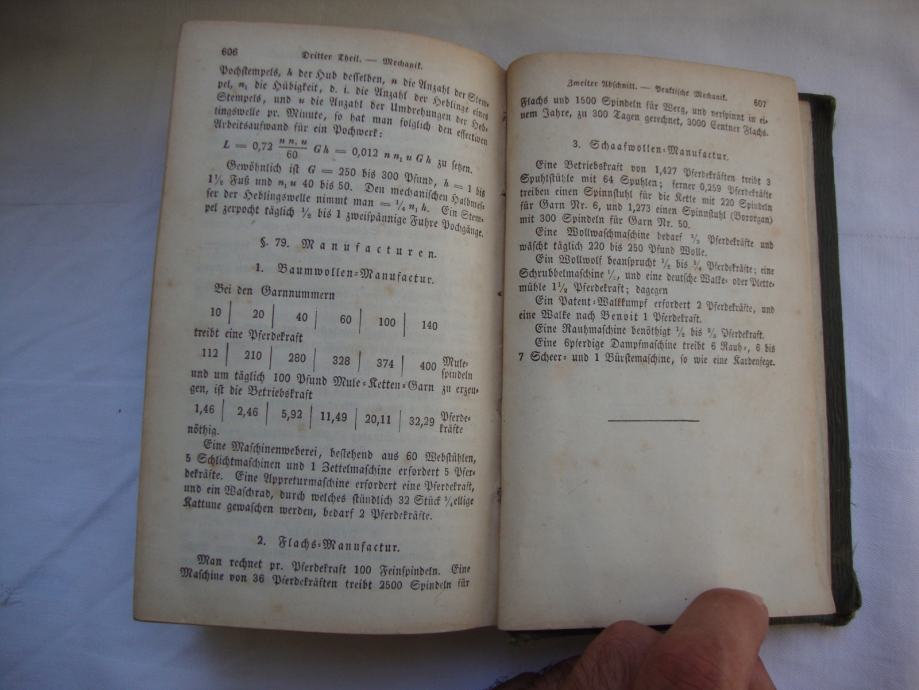 606
Dritter Theil. — Mechanik.
Pochstempels, h der Hub desselben, n die Anzahl der Stem-
pel, n₁ die Hübigkeit, d. i. die Anzahl der Heblinge eines
Stempels, und u die Anzahl der Umdrehungen der Heb-
lingswelle pr. Minute, so hat man folglich den effectiven
Arbeitsaufwand für ein Pochwerk:
L = 0,72 n n₁ u / 60 G h = 0,012 n n₁ u G h zu setzen.
Gewöhnlich ist G = 250 bis 300 Pfund, h = 1 bis
1½ Fuß und n₁ u 40 bis 50. Den mechanischen Halbmes-
ser der Heblingswelle nimmt man = ¼ n₁ h. Ein Stem-
pel zerpocht täglich ½ bis 1 zweispännige Fuhre Pochgänge.
§. 79. Manufacturen.
1. Baumwollen-Manufactur.
Bei den Garnnummern
10 | 20 | 40 | 60 | 100 | 140
treibt eine Pferdekraft
112 | 210 | 280 | 328 | 374 | 400 Mule-
spindeln
und um täglich 100 Pfund Mule-Ketten-Garn zu erzeu-
gen, ist die Betriebskraft
1,46 | 2,46 | 5,92 | 11,49 | 20,11 | 32,29 Pferde-
kräfte
nöthig.
Eine Maschinenweberei, bestehend aus 60 Webstühlen,
5 Schlichtmaschinen und 1 Zettelmaschine erfordert 5 Pfer-
dekräfte. Eine Appreturmaschine erfordert eine Pferdekraft,
und ein Waschrad, durch welches stündlich 32 Stück ellige
Kattune gewaschen werden, bedarf 2 Pferdekräfte.
2. Flachs-Manufactur.
Man rechnet pr. Pferdekraft 100 Feinspindeln. Eine
Maschine von 36 Pferdekräften treibt 2500 Spindeln für
Zweiter Abschnitt. — Praktische Mechanik.
607
Flachs und 1500 Spindeln für Werg, und verspinnt in ei-
nem Jahre, zu 300 Tagen gerechnet, 3000 Centner Flachs.
3. Schaafwollen-Manufactur.
Eine Betriebskraft von 1,427 Pferdekräften treibt 3
Spuhlstühle mit 64 Spuhlen; ferner 0,259 Pferdekräfte
treiben einen Spinnstuhl für die Kette mit 220 Spindeln
für Garn Nr. 6, und 1,273 einen Spinnstuhl (Bororgan)
mit 300 Spindeln für Garn Nr. 50.
Eine Wollwaschmaschine bedarf Pferdekräfte und
wäscht täglich 220 bis 250 Pfund Wolle.
Ein Wollwolf beansprucht ½ bis Pferdekräfte; eine
Schrubbelmaschine und eine deutsche Walke- oder Plette-
mühle Pferdekraft; dagegen
Ein Patent-Walkkumpf erfordert 2 Pferdekräfte, und
eine Walke nach Benoit 1 Pferdekraft.
Eine Rauhmaschine benöthigt ½ bis Pferdekraft.
Eine 6pferdige Dampfmaschine treibt 6 Rauh-, 6 bis
7 Scheer- und 1 Bürstemaschine, so wie eine Kardenfege.